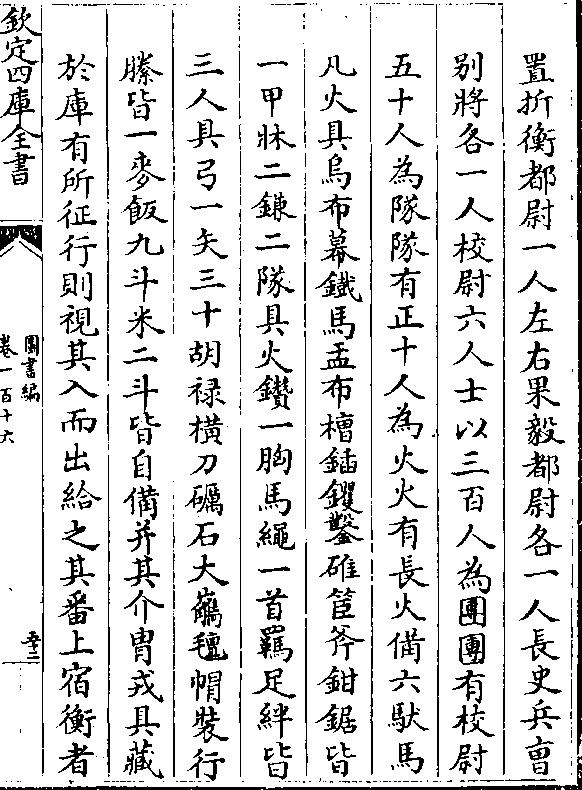 置折衝都尉一人左右果毅都尉各一人長史兵曹
别將各一人校尉六人士以三百人為團團有校尉
五十人為隊隊有正十人為火火有長火備六馱馬
凡火具烏布幕鐵馬盂布槽鍤钁鑿碓筥斧鉗鋸皆
一甲牀二鎌二隊具火鑽一胸馬繩一首羈足絆皆
三人具弓一矢三十胡祿横刀礪石大觿氊帽裝行
縢皆一麥飯九斗米二斗皆自備并其介胄戎具藏
於庫有所征行則視其入而出給之其番上宿衛者
欽定四庫全書
圖書編
卷一百十六